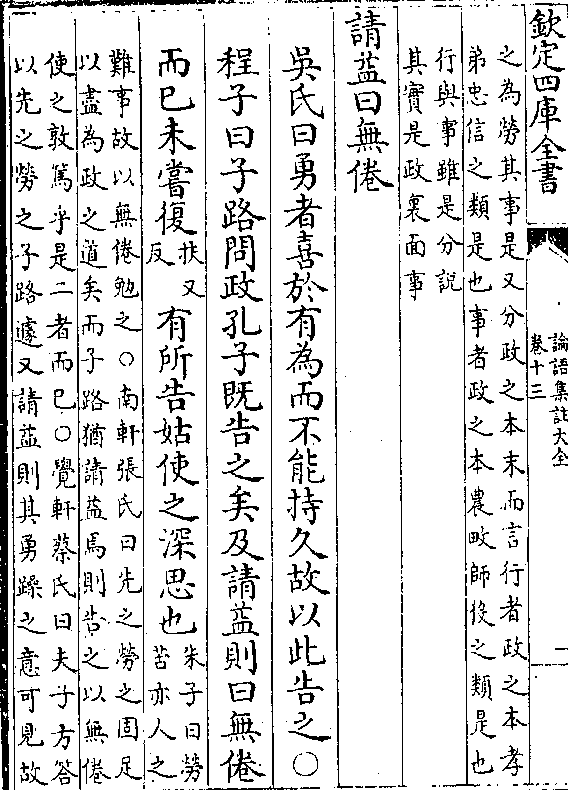 欽定四庫全書
論語集註大全
卷十三
一
之為勞其事是又分政之本末而言行者政之本孝
弟忠信之類是也事者政之本農畋師役之類是也
行與事雖是分說
其實是政裏面事
請益曰無倦
吳氏曰勇者喜於有為而不能持久故以此告之○
程子曰子路問政孔子既告之矣及請益則曰無倦
而已未嘗復
扶又
反
有所告姑使之深思也
朱子曰勞
苦亦人之
難事故以無倦勉之○南軒張氏曰先之勞之固足
以盡為政之道矣而子路猶請益焉則告之以無倦
使之敦篤乎是二者而已○覺軒蔡氏曰夫子方答
以先之勞之子路遽又請益則其勇躁之意可見故